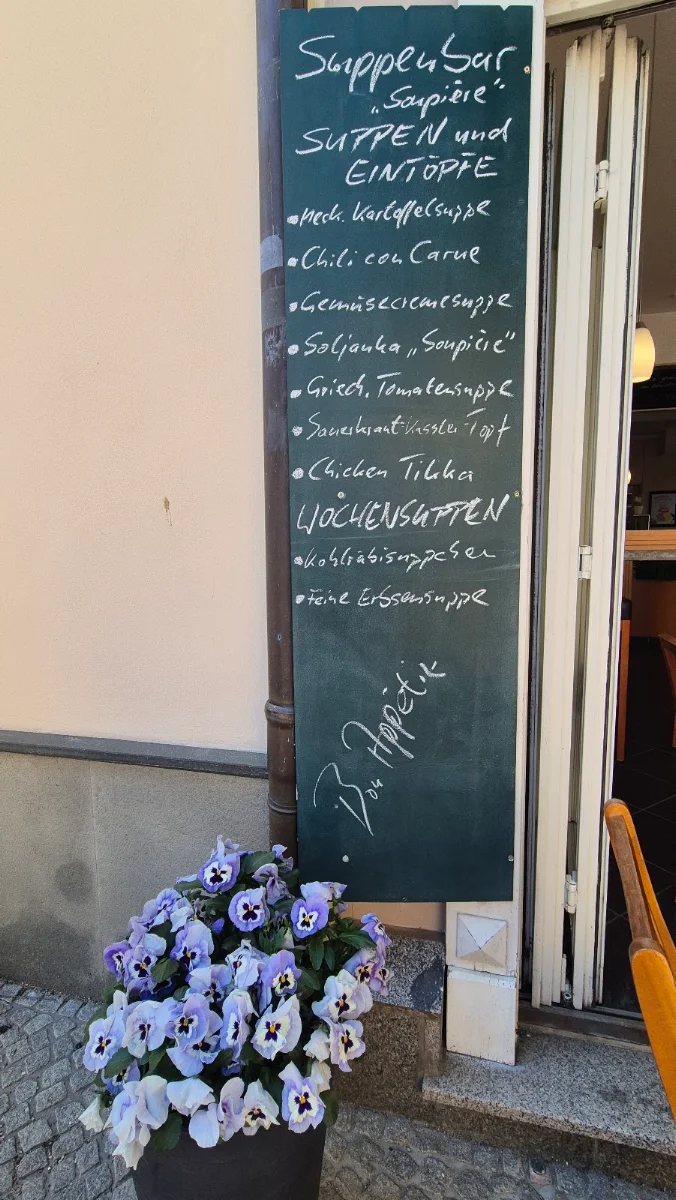 Suppenbar
„Soupière“
SUPPEN und
EINTÖPFE
• Meck. Kartoffelsuppe
• Chili con Carne
• Gemüsecremesuppe
• Soljanka „Soupière“
• Griech. Tomatensuppe
• Sauerkraut-Kassler-Topf
• Chicken Tikka
WOCHENSUPPEN
• Kohlrabisüppchen
• Feine Erbsensuppe
Bon Appétit